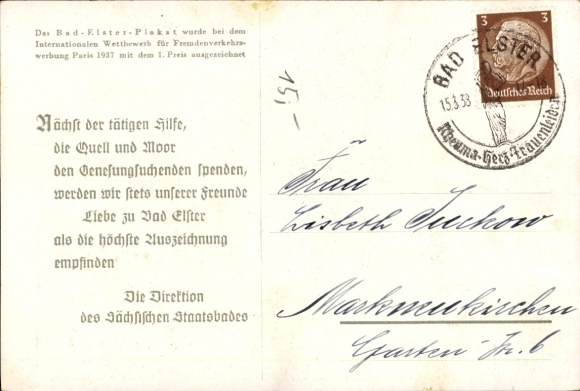 Das Bad-Elster-Plakat wurde bei dem
Internationalen Wettbewerb für Fremdenverkehrs-
werbung Paris 1937 mit dem 1. Preis ausgezeichnet
Nächst der tätigen Hilfe,
die Quell und Moor
den Genesungsuchenden spenden,
werden wir stets unserer Freunde
Liebe zu Bad Elster
als die höchste Auszeichnung
empfinden
Die Direktion
des Sächsischen Staatsbades
15,–
3 3
Deutsches Reich
BAD ELSTER
15.3.38
Rheuma·Herz·Frauenleiden
Frau
Lisbeth Turkow
Markneukirchen
Garten Str. 6